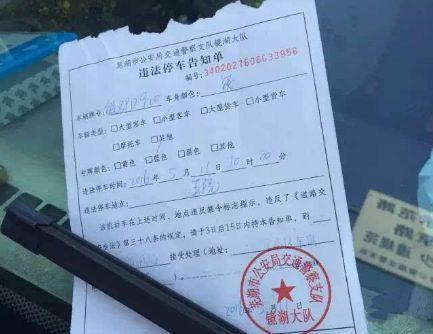 芜湖市公安局交通警察支队镜湖大队
违法停车告知单
编号:3402027606033956
车辆牌号: 车身颜色:灰
车辆类型:□大型客车 □小型客车 □大型货车 □小型货车
□摩托车 □其他
号牌颜色:□黄色 □蓝色 □黑色 □其他
违法停车时间:2016年5月11日10时00分
违法停车地点:
该机动车在上述时间、地点违反禁令标志指示,违反了《道路交
安全法》第三十八条的规定,请于3日后15日内持本告知单,到
接受处理(地址:
芜湖市公安局交通警察支队
镜湖大队
2016年5月11日